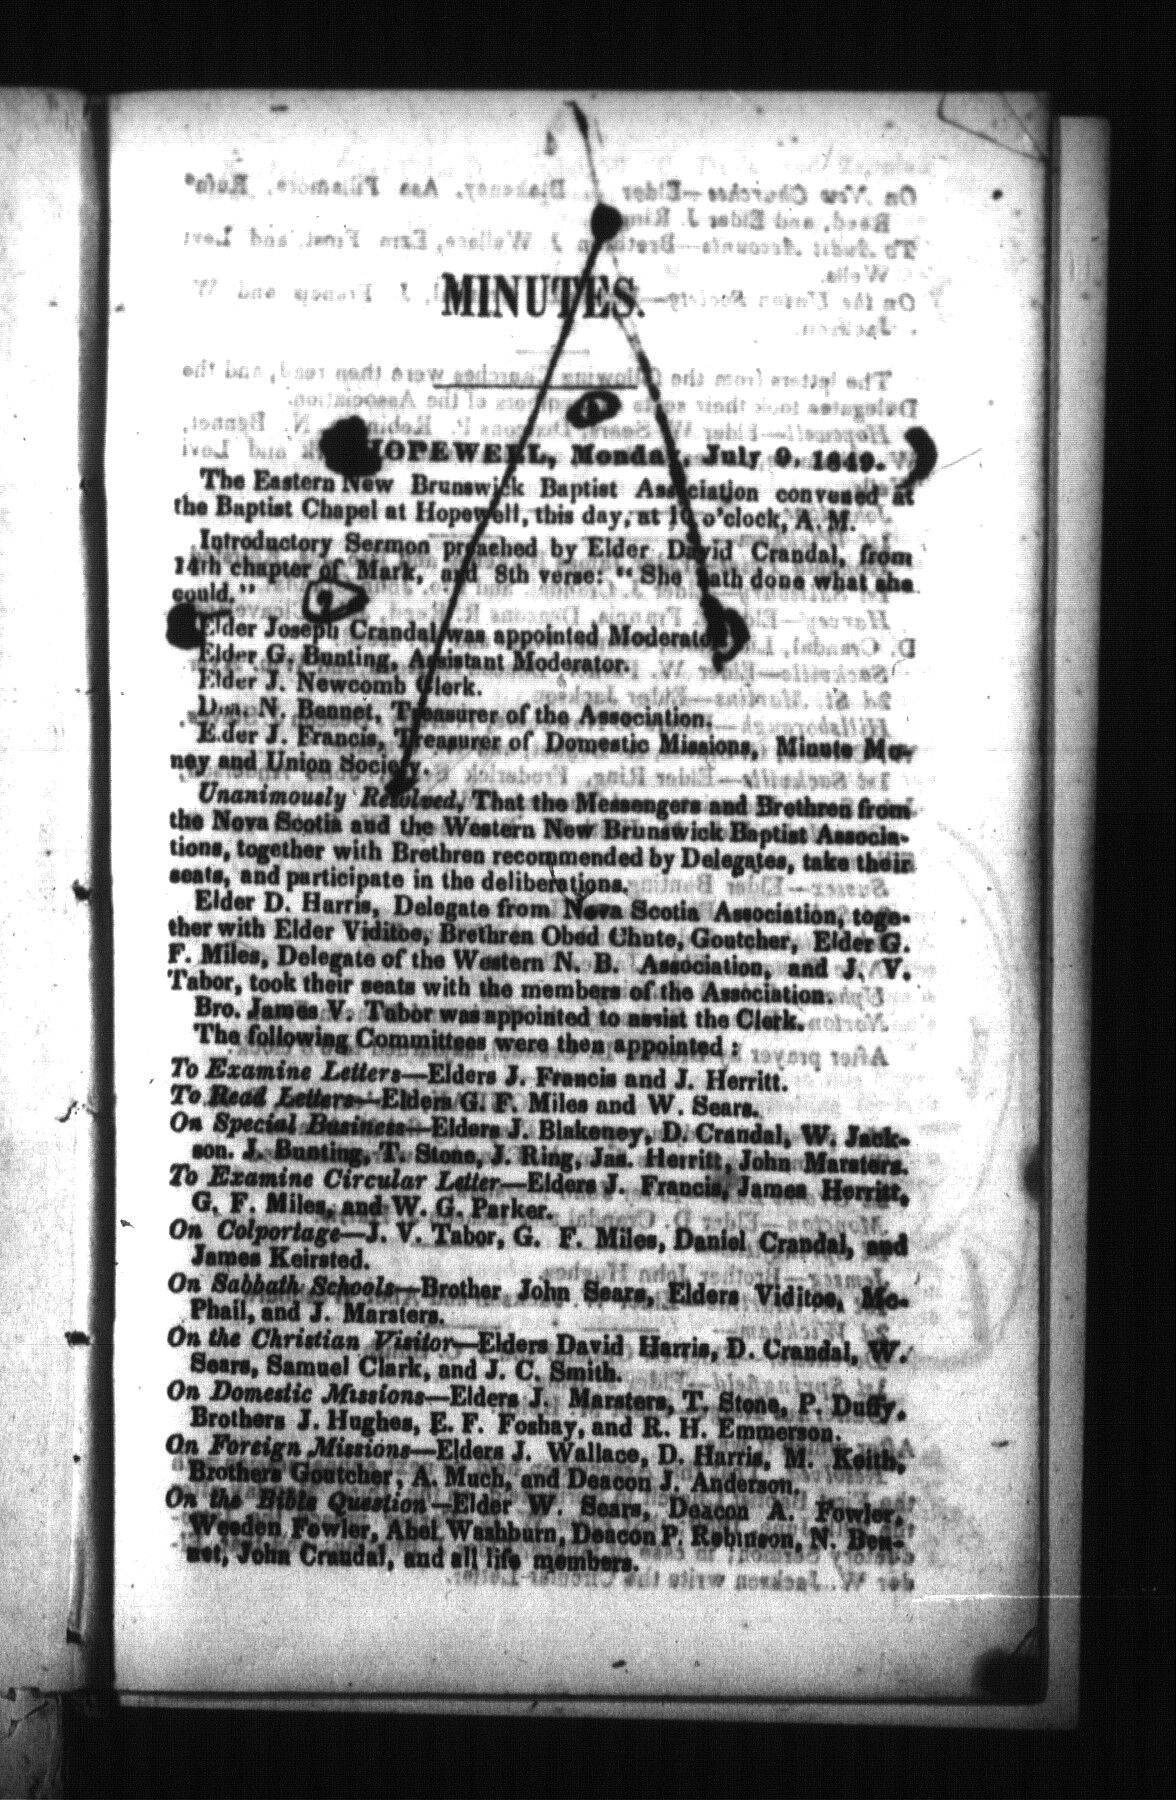 MINUTES.
HOPEWELL, Monday, July 9, 1849.
The Eastern New Brunswick Baptist Association convened at
the Baptist Chapel at Hopewell, this day, at 10 o'clock, A. M.
Introductory Sermon preached by Elder David Crandal, from
14th chapter of Mark, and 8th verse: "She hath done what she
could."
Elder Joseph Crandal was appointed Moderator.
Elder G. Bunting, Assistant Moderator.
Elder J. Newcomb Clerk.
Dea. N. Bennet, Treasurer of the Association.
Elder J. Francis, Treasurer of Domestic Missions, Minute Mo-
ney and Union Society.
Unanimously Resolved, That the Messengers and Brethren from
the Nova Scotia and the Western New Brunswick Baptist Associa-
tions, together with Brethren recommended by Delegates, take their
seats, and participate in the deliberations.
Elder D. Harris, Delegate from Nova Scotia Association, toge-
ther with Elder Viditoe, Brethren Obed Chute, Goutcher, Elder G.
F. Miles, Delegate of the Western N. B. Association, and J. V.
Tabor, took their seats with the members of the Association.
Bro. James V. Tabor was appointed to assist the Clerk.
The following Committees were then appointed :
To Examine Letters—Elders J. Francis and J. Herritt.
To Read Letters—Elders G. F. Miles and W. Sears.
On Special Business—Elders J. Blakeney, D. Crandal, W. Jack-
son. J. Bunting, T. Stone, J. Ring, Jas. Herritt, John Marsters.
To Examine Circular Letter—Elders J. Francis, James Herritt,
G. F. Miles, and W. G. Parker.
On Colportage—J. V. Tabor, G. F. Miles, Daniel Crandal, and
James Keirsted.
On Sabbath Schools—Brother John Sears, Elders Viditoe, Mc-
Phail, and J. Marsters.
On the Christian Visitor—Elders David Harris, D. Crandal, W.
Sears, Samuel Clark, and J. C. Smith.
On Domestic Missions—Elders J. Marsters, T. Stone, P. Duffy,
Brothers J. Hughes, E. F. Foshay, and R. H. Emmerson.
On Foreign Missions—Elders J. Wallace, D. Harris, M. Keith,
Brothers Goutcher, A. Much, and Deacon J. Anderson.
On the Bible Question—Elder W. Sears, Deacon A. Fowler,
Weeden Fowler, Abel Washburn, Deacon P. Robinson, N. Ben-
net, John Crandal, and all life members.